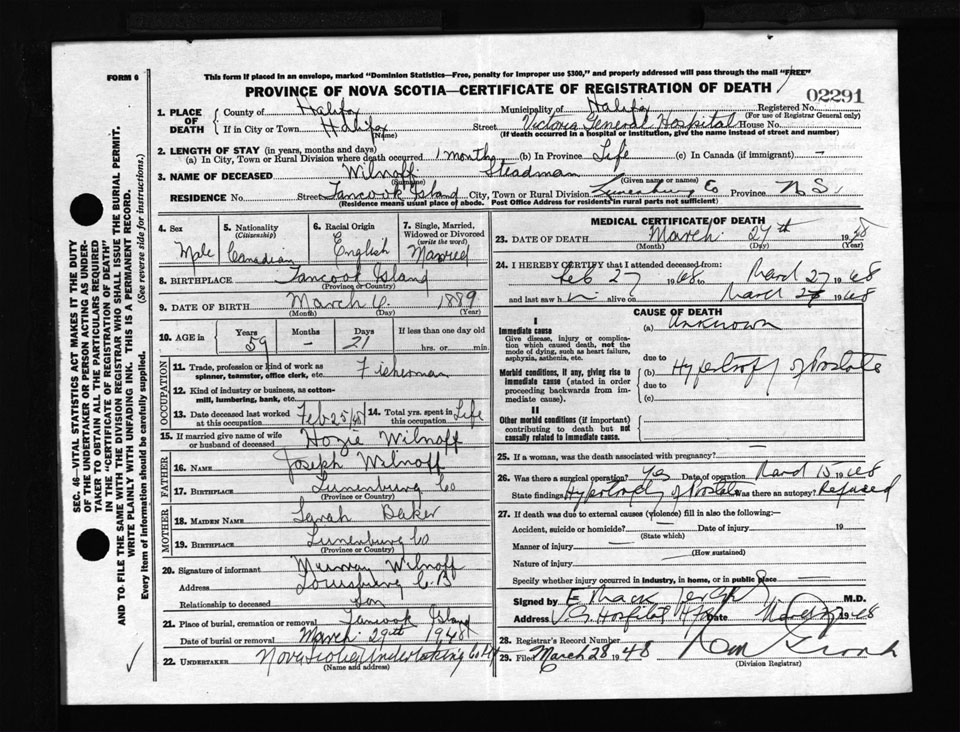 FORM 6
This form if placed in an envelope, marked "Dominion Statistics—Free, penalty for improper use $300," and properly addressed will pass through the mail "FREE"
PROVINCE OF NOVA SCOTIA—CERTIFICATE OF REGISTRATION OF DEATH
02291
1. PLACE OF DEATH County of Halifax Municipality of Halifax Registered No.
(For use of Registrar General only)
If in City or Town Halifax (Name) Street Victoria General Hospital House No.
(If death occurred in a hospital or institution, give the name instead of street and number)
2. LENGTH OF STAY (in years, months and days)
(a) In City, Town or Rural Division where death occurred 1 month (b) In Province Life (c) In Canada (if immigrant) —
3. NAME OF DECEASED Wilnoff Steadman
(Surname) (Given name or names)
RESIDENCE No. Street Tancook Island City, Town or Rural Division Lunenburg Co Province N S
(Residence means usual place of abode. Post Office Address for residents in rural parts not sufficient)
4. Sex Male
5. Nationality (Citizenship) Canadian
6. Racial Origin English
7. Single, Married, Widowed or Divorced (write the word) Married
8. BIRTHPLACE Tancook Island
(Province or Country)
9. DATE OF BIRTH March 6 1889
(Month) (Day) (Year)
10. AGE in Years 59 Months — Days 21 If less than one day old hrs. or min.
OCCUPATION
11. Trade, profession or kind of work as spinner, teamster, office clerk, etc. Fisherman
12. Kind of industry or business, as cotton-mill, lumbering, bank, etc.
13. Date deceased last worked at this occupation Feb 25/48 14. Total yrs. spent in this occupation Life
15. If married give name of wife or husband of deceased Hozie Wilnoff
FATHER
16. NAME Joseph Wilnoff
17. BIRTHPLACE Lunenburg Co
(Province or Country)
MOTHER
18. MAIDEN NAME Sarah Baker
19. BIRTHPLACE Lunenburg Co
(Province or Country)
20. Signature of informant Murray Wilnoff
Address Louisburg C.B
Relationship to deceased Son
21. Place of burial, cremation or removal Tancook Island
Date of burial or removal March 29th 1948
22. UNDERTAKER Nova Scotia Undertaking Co Ltd
(Name and address)
MEDICAL CERTIFICATE OF DEATH
23. DATE OF DEATH March 27th 1948
(Month) (Day) (Year)
24. I HEREBY CERTIFY that I attended deceased from:
Feb 27 1948 to March 27 1948
and last saw him alive on March 27 1948
CAUSE OF DEATH
I
Immediate cause
Give disease, injury or complication which caused death, not the mode of dying, such as heart failure, asphyxia, asthenia, etc.
(a) Unknown
due to
Morbid conditions, if any, giving rise to immediate cause (stated in order proceeding backwards from immediate cause).
(b) Hypertrophy of Prostate
due to
(c)
II
Other morbid conditions (if important) contributing to death but not causally related to immediate cause.
25. If a woman, was the death associated with pregnancy? —
26. Was there a surgical operation? Yes Date of operation March 15 1948
State findings Hypertrophy of Prostate Was there an autopsy? Refused
27. If death was due to external causes (violence) fill in also the following:—
Accident, suicide or homicide? — Date of injury 19
(State which)
Manner of injury —
(How sustained)
Nature of injury —
Specify whether injury occurred in industry, in home, or in public place —
Signed by E Mack M.D.
Address V. G. Hospital Hfx Date 1948
28. Registrar's Record Number
29. Filed March 28 1948
(Division Registrar)
SEC. 46—VITAL STATISTICS ACT MAKES IT THE DUTY
OF THE UNDERTAKER OR PERSON ACTING AS UNDER-
TAKER TO OBTAIN ALL THE PARTICULARS REQUIRED
IN THE "CERTIFICATE OF REGISTRATION OF DEATH"
AND TO FILE THE SAME WITH THE DIVISION REGISTRAR WHO SHALL ISSUE THE BURIAL PERMIT.
WRITE PLAINLY WITH UNFADING INK. THIS IS A PERMANENT RECORD.
Every item of information should be carefully supplied. (See reverse side for instructions.)